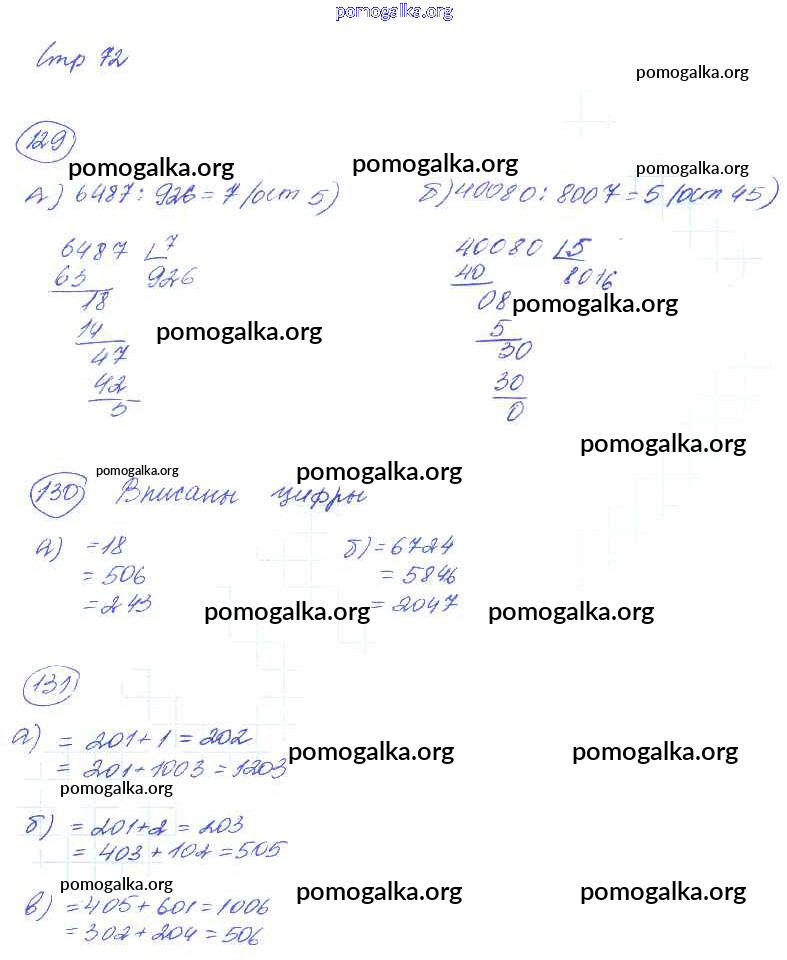 pomogalka.org
Стр 72
pomogalka.org
129
pomogalka.org pomogalka.org pomogalka.org
А) 6487 : 926 = 7 (ост 5) б) 40080 : 8007 = 5 (ост 45)
6487 7 40080 5
63 926 40 8016
18 08 pomogalka.org
14 pomogalka.org 5
47 30
42 30
5 0
pomogalka.org
pomogalka.org pomogalka.org
130 Вписаны цифры
а) = 18 б) = 6724
= 506 = 5846
= 243 = 2047
pomogalka.org pomogalka.org
131
а) = 201 + 1 = 202
pomogalka.org pomogalka.org
= 201 + 1003 = 1203
pomogalka.org
б) = 201 + 2 = 203
= 403 + 102 = 505
pomogalka.org pomogalka.org pomogalka.org
в) = 405 + 601 = 1006
= 302 + 204 = 506